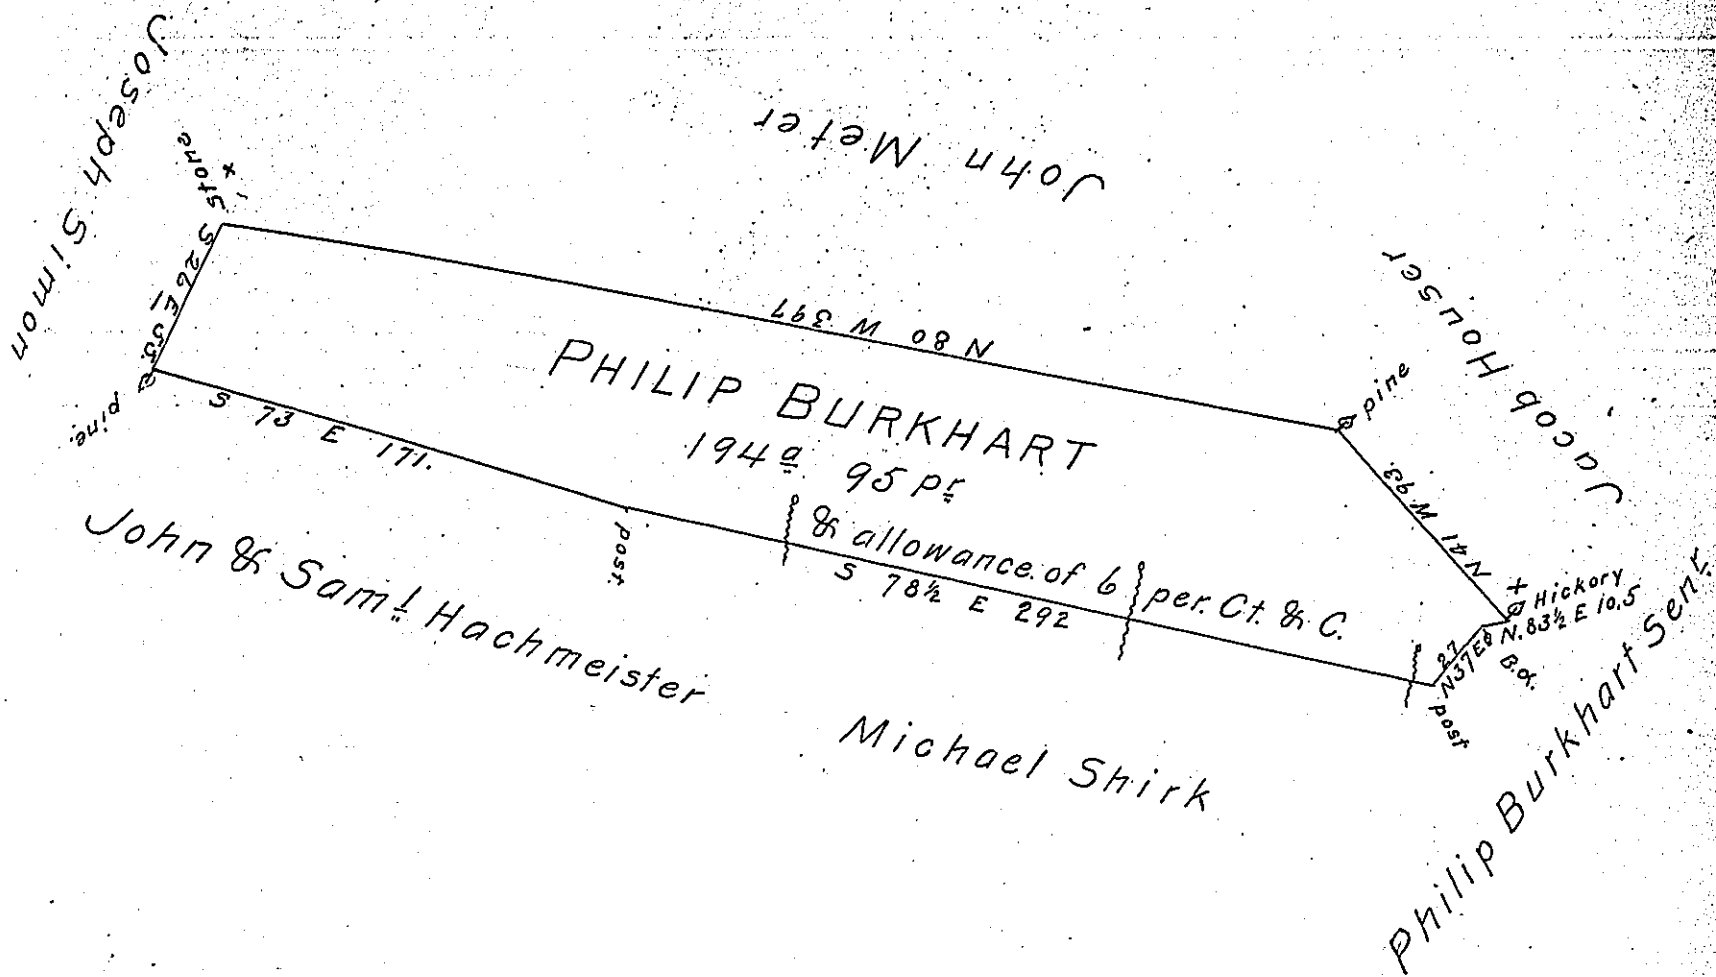 Joseph Simon
John Meter
Jacob Houser
stone
S 26 E 55.
pine.
N 80 W 397
pine
N 41 W 93.
PHILIP BURKHART
194a 95 Pr
& allowance of 6 per. Ct. & C.
S 73 E 171.
post.
S 78½ E 292
Hickory
N. 83½ E 10.5
27
N37E
B.O.
post
John & Saml Hachmeister
Michael Shirk
Philip Burkhart Senr.